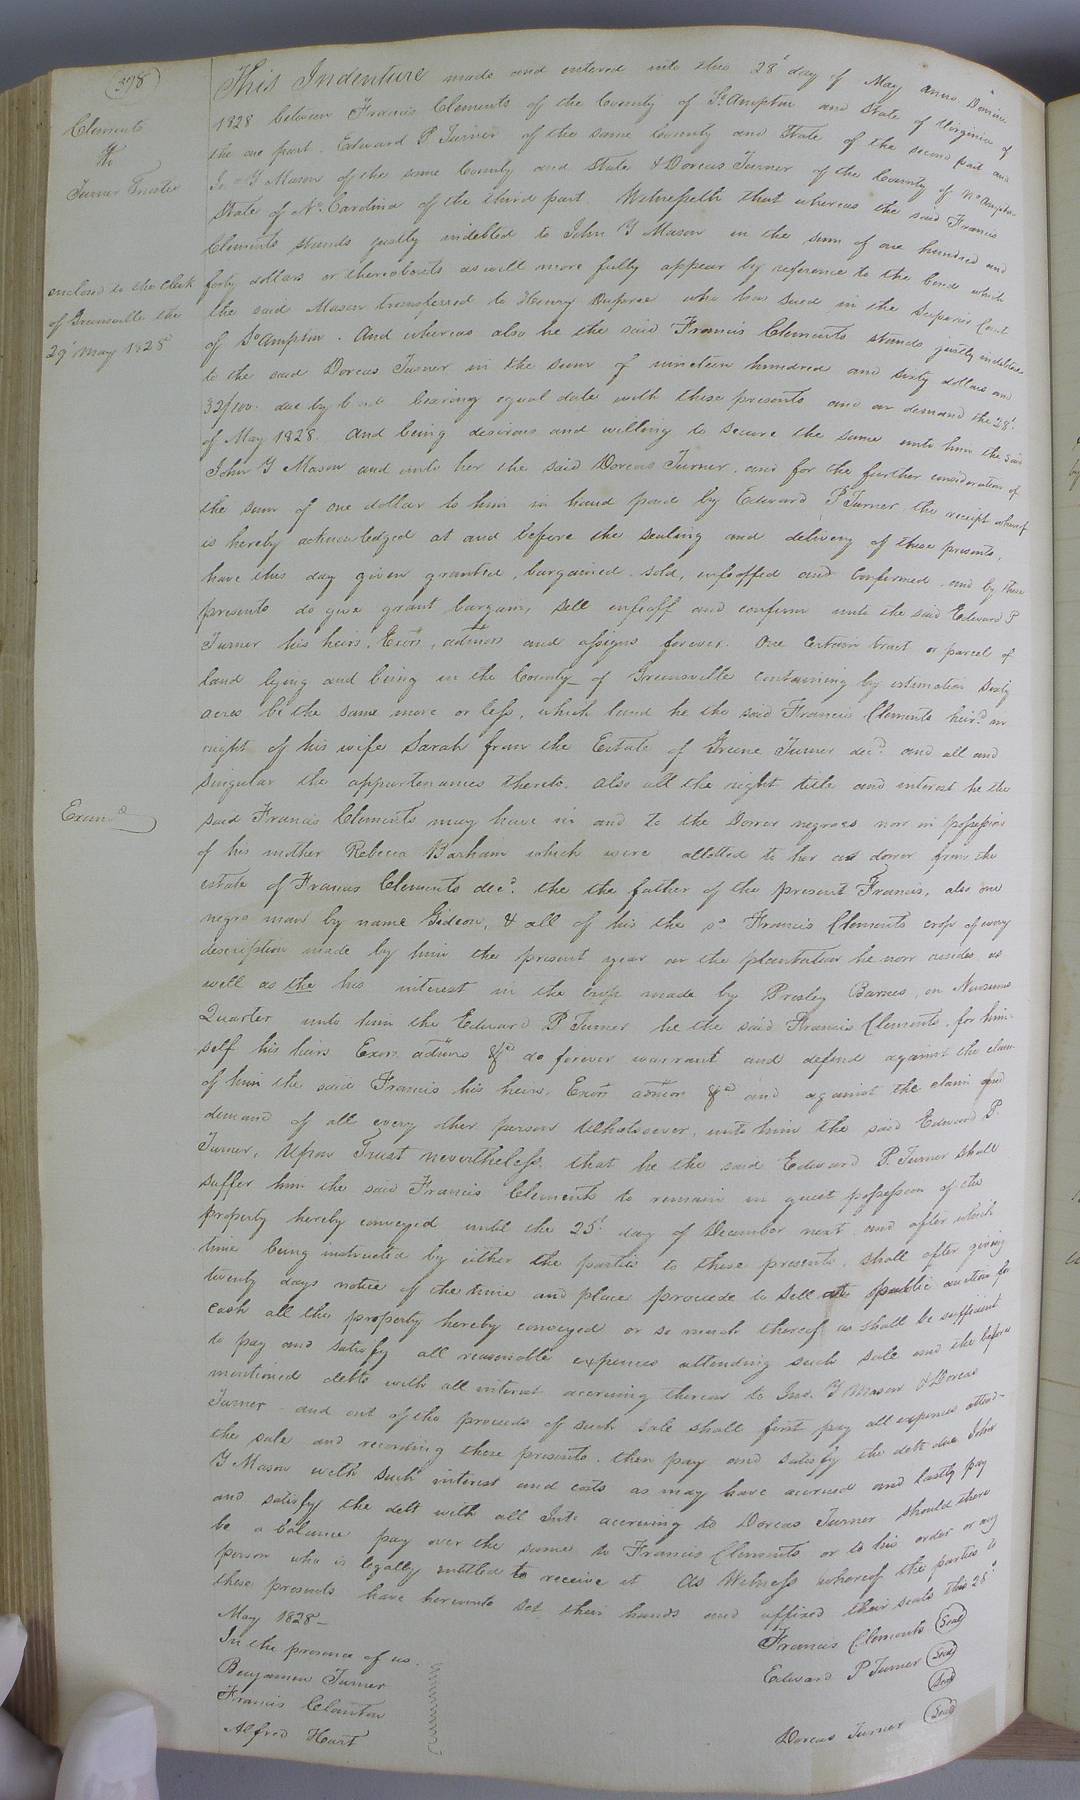 378
Clements
To
Turner Trustee
enclosed to the Clerk
of Greensville the
29' May 1828
Exam.d
This Indenture made and entered into this 28' day of May anno Domini
1828 between Francis Clements of the County of So Ampton and State of Virginia of
the one part. Edward P Turner of the same County and State of the second part and
Jo. Y Mason of the same County and State & Dorcas Turner of the County of No Ampton
State of No. Carolina of the third part. Witnesseth that whereas the said Francis
Clements stands justly indebted to John Y Mason in the sum of one hundred and
forty dollars or thereabouts as will more fully appear by reference to the bond which
the said Mason transferred to Henry Dupree who has sued in the Superior Court
of So Ampton. And whereas also he the said Francis Clements stands justly indebted
to the said Dorcas Turner in the sum of nineteen hundred and sixty dollars and
32/100. due by bond bearing equal date with these presents and on demand the 28'.
of May 1828. And being desirous and willing to secure the same unto him the said
John Y Mason and unto her the said Dorcas Turner, and for the further consideration of
the sum of one dollar to him in hand paid by Edward P Turner the receipt whereof
is hereby acknowledged at and before the sealing and delivery of these presents,
have this day given granted, bargained sold, enfeoffed and confirmed and by these
presents do give grant bargain, sell enfeoff and confirm unto the said Edward P
Turner his heirs, Exors, admors and assigns forever. One certain tract or parcel of
land lying and being in the County of Greensville containing by estimation sixty
acres be the same more or less, which land he the said Francis Clements heir.d in
right of his wife Sarah from the Estate of Greene Turner dec.d and all and
singular the appurtenances thereto. also all the right title and interest he the
said Francis Clements may have in and to the Dower negroes now in possession
of his mother Rebecca Barham which were allotted to her as dower from the
estate of Francis Clements dec.d the the father of the present Francis, also one
negro man by name Gideon, & all of his the sd Francis Clements crop of every
description made by him the present year on the plantation he now resides as
well as the his interest in the crop made by Presley Barnes, on Newsums
Quarter unto him the Edward P Turner he the said Francis Clements, for him-
self his heirs Exors admors &c do forever warrant and defend against the claim
of him the said Francis his heirs, Exors admors &c and against the claim and
demand of all every other person Whatsoever, unto him the said Edward P.
Turner, Upon Trust nevertheless that he the said Edward P. Turner shall
suffer him the said Francis Clements to remain in quiet possession of the
property hereby conveyed until the 25' day of December next and after which
time being instructed by either the parties to these presents, shall after giving
twenty days notice of the time and place proceede to sell at public auction for
cash all the property hereby conveyed or so much thereof as shall be sufficient
to pay and satisfy all reasonable expences attending such sale and the before
mentioned debts with all interest accruing thereon to Jno. Y Mason & Dorcas
Turner and out of the proceeds of such sale shall first pay all expences attend-
the sale and recording these presents, then pay and satisfy the debt due John
Y Mason with such interest and costs as may have accrued and lastly pay
and satisfy the debt with all Int. accruing to Dorcas Turner should there
be a balance pay over the same to Francis Clements or to his order or any
person who is legally entitled to receive it As Witness whereof the parties to
these presents have hereunto set their hands and affixed their seals this 28'
May 1828—
In the presence of us.
Benjamin Turner
Francis Clanton
Alfred Hart
Francis Clements Seal
Edward P Turner Seal
Seal
Dorcas Turner Seal